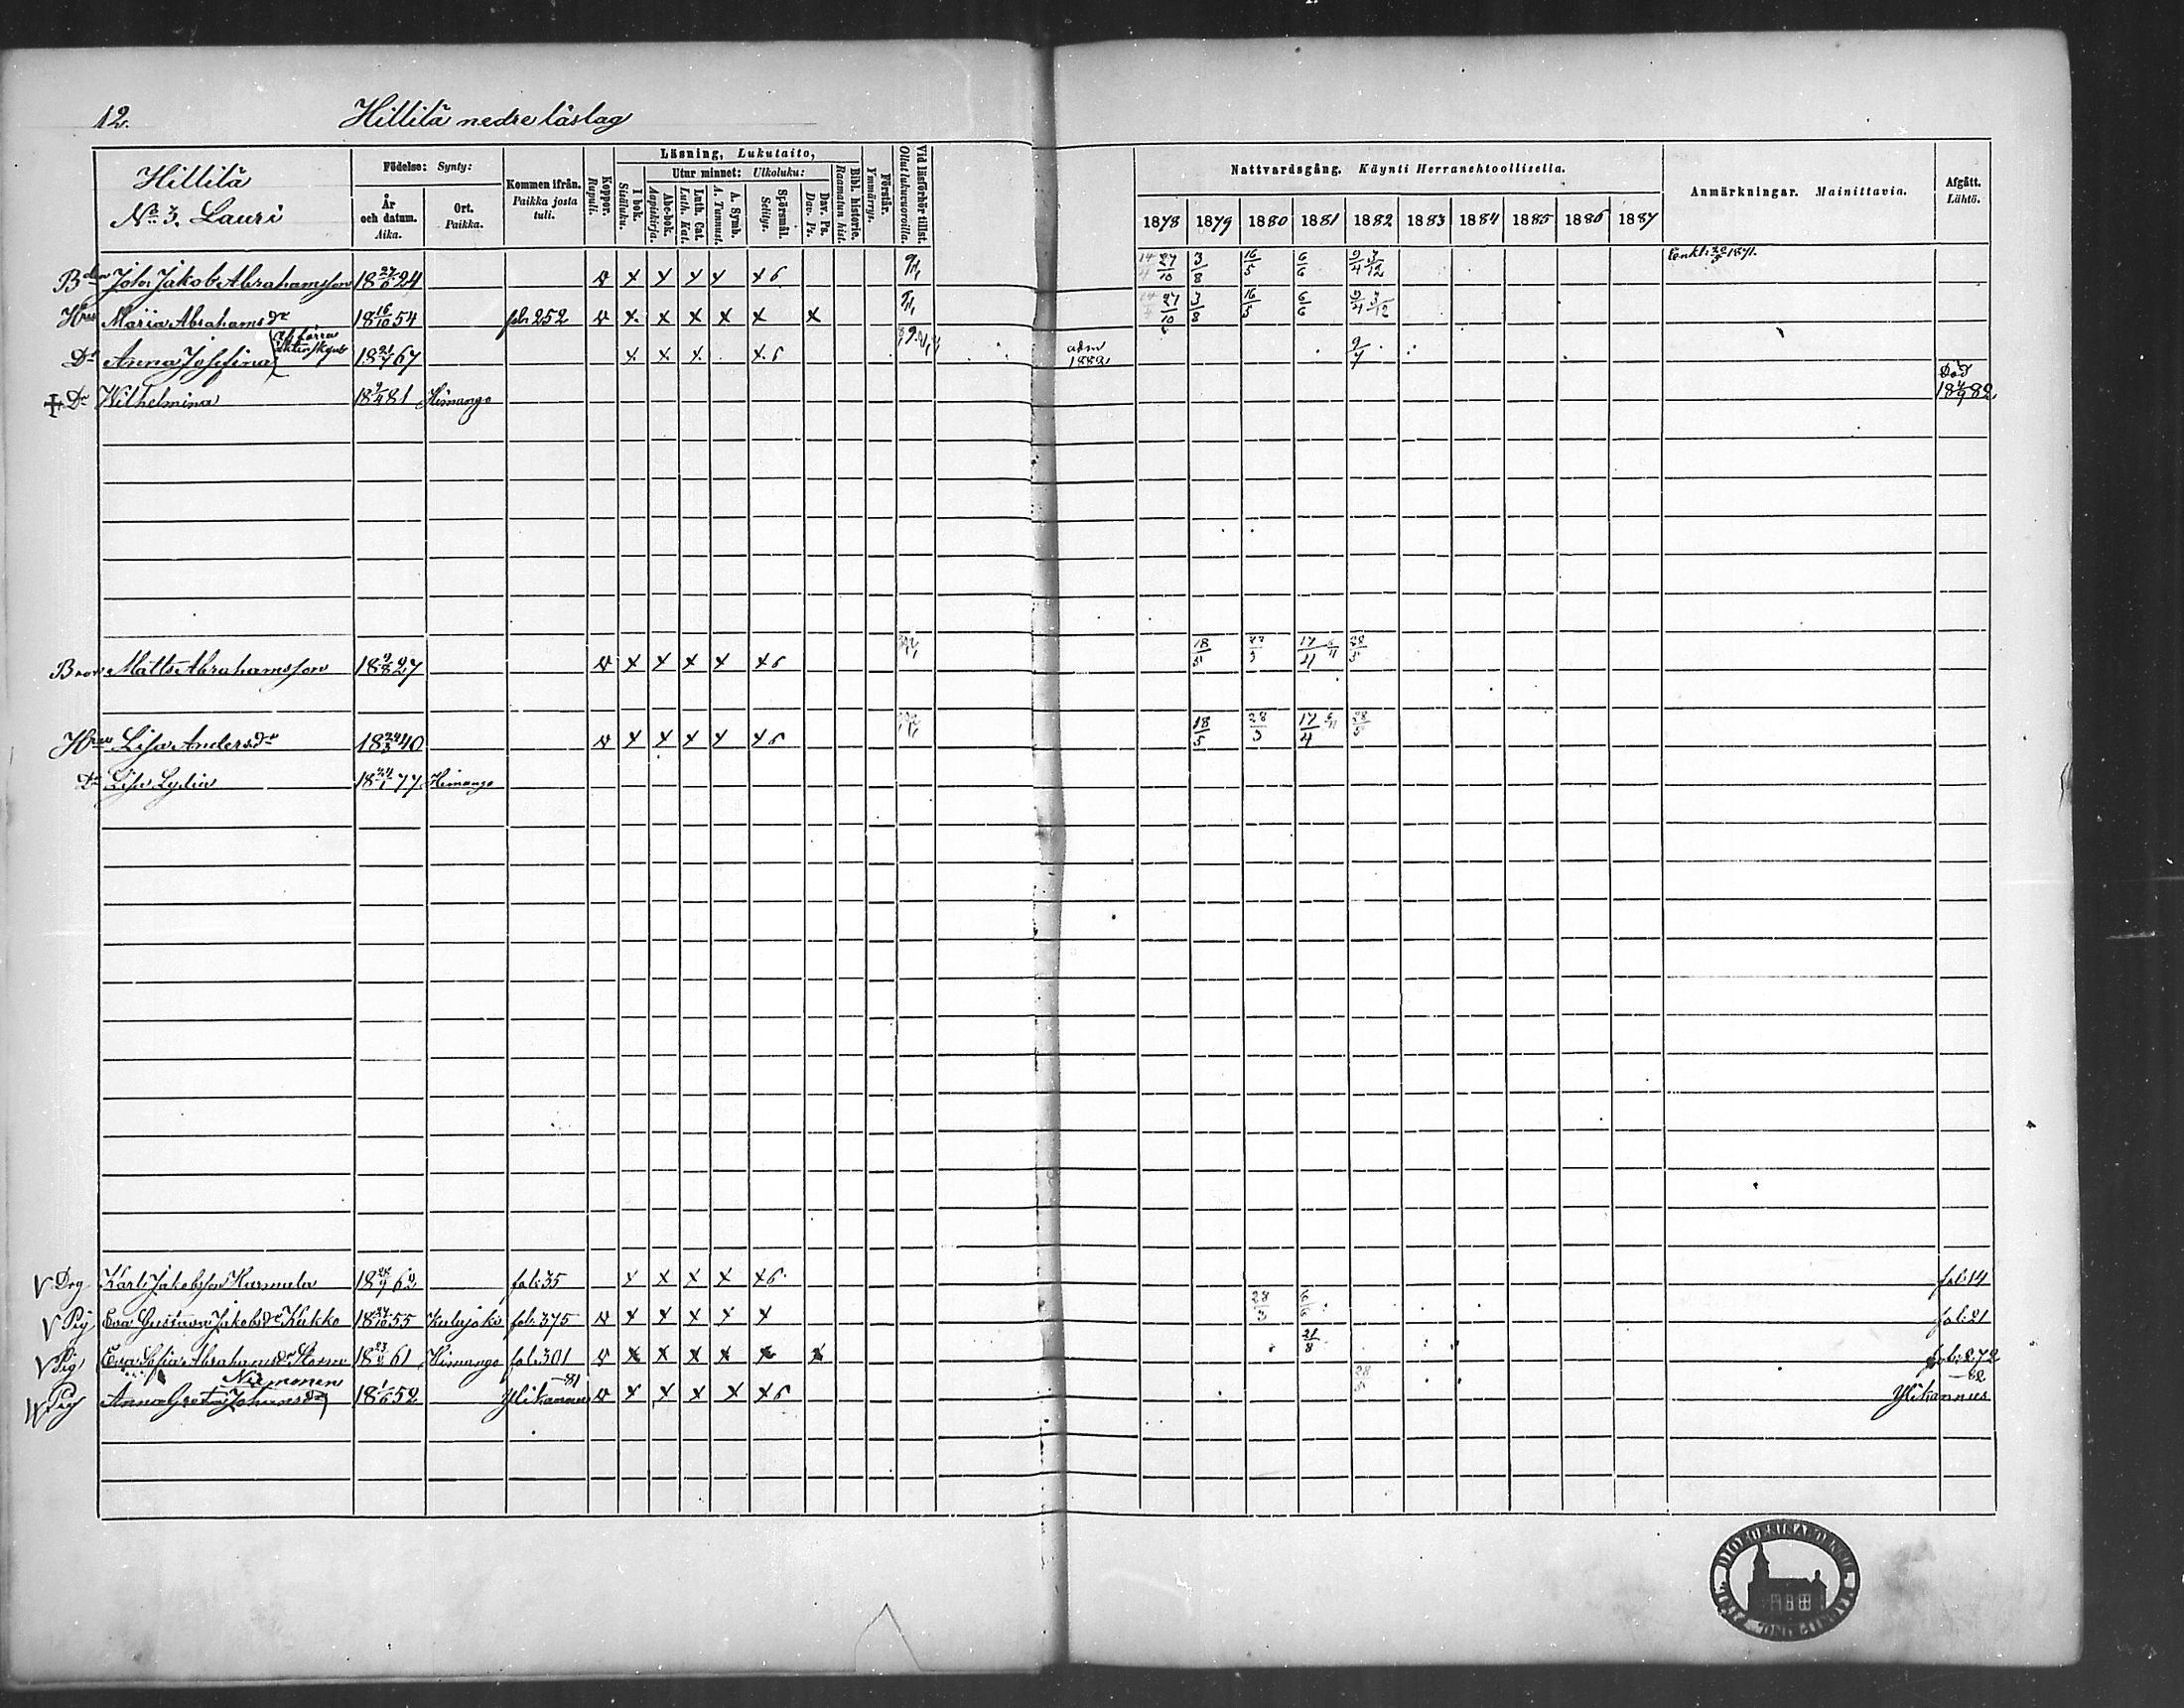 12.
Hillilä nedre läslag
Hillilä
No 3. Lauri
Födelse: Synty:
År och datum. Aika.
Ort. Paikka.
Kommen ifrån. Paikka josta tuli.
Koppor. Rupuli.
Läsning, Lukutaito,
I bok. Sisäluku.
Utur minnet: Ulkoluku:
Abc-bok. Aapiskirja.
Luth. Cat. Luth. Kat.
A. Symb. A. Tunnust.
Spörsmål. Selitys.
Dav. Ps. Dav. Ps.
Bibl. historie. Raamatun hist.
Förstår. Ymmärrys.
Vid läsförhör tillst. Ollut lukuvuoroilla.
Nattvardsgång. Käynti Herranehtoollisella.
1878 1879 1880 1881 1882 1883 1884 1885 1886 1887
Anmärkningar. Mainittavia.
Afgått. Lähtö.
Bden Joh. Jakob Abrahamsson 18 27/6 24 v x x x x x 6 27/10 3/8 16/5 6/6 9/4 3/12 Enkl. 20/5 1871.
Hru Maria Abrahamsdr 18 16/10 54 fol. 252 v x x x x x x 27/10 3/8 16/5 6/6 9/4 3/12
Dr Anna Josefina 18 21/7 67 x x x x 6 adm 1882 9/7
Dr Wilhelmina 18 9/4 81 Himango Död 18 4/9 82
Bror Matts Abrahamsson 18 9/8 27 v x x x x x 6 18/5 17/4 28/5
Hru Lisa Andersdr 18 24/3 40 v x x x x x 6 18/5 28/3 17/4 28/5
Dr Lisa Lydia 18 24/1 77 Himango
V Drg Karl Jakobsson Harmala 18 6 fol. 35 x x x x x 6 fol. 14
V Pig Eva Gustava Jakobsdr Kukko 18 27/10 55 Kalajoki fol. 375 v x x x x x 28/3 6/6 fol. 21
V Pig Eva Sofia Abrahamsdr Storm 18 61 Himango fol. 301 v x x x x x x 21/8 fol. 272
Niemonen
V Pig Anna Greta Johansdr 18 1/6 52 Ylikannus 81 v x x x x x 6 28/5 82 Ylikannus